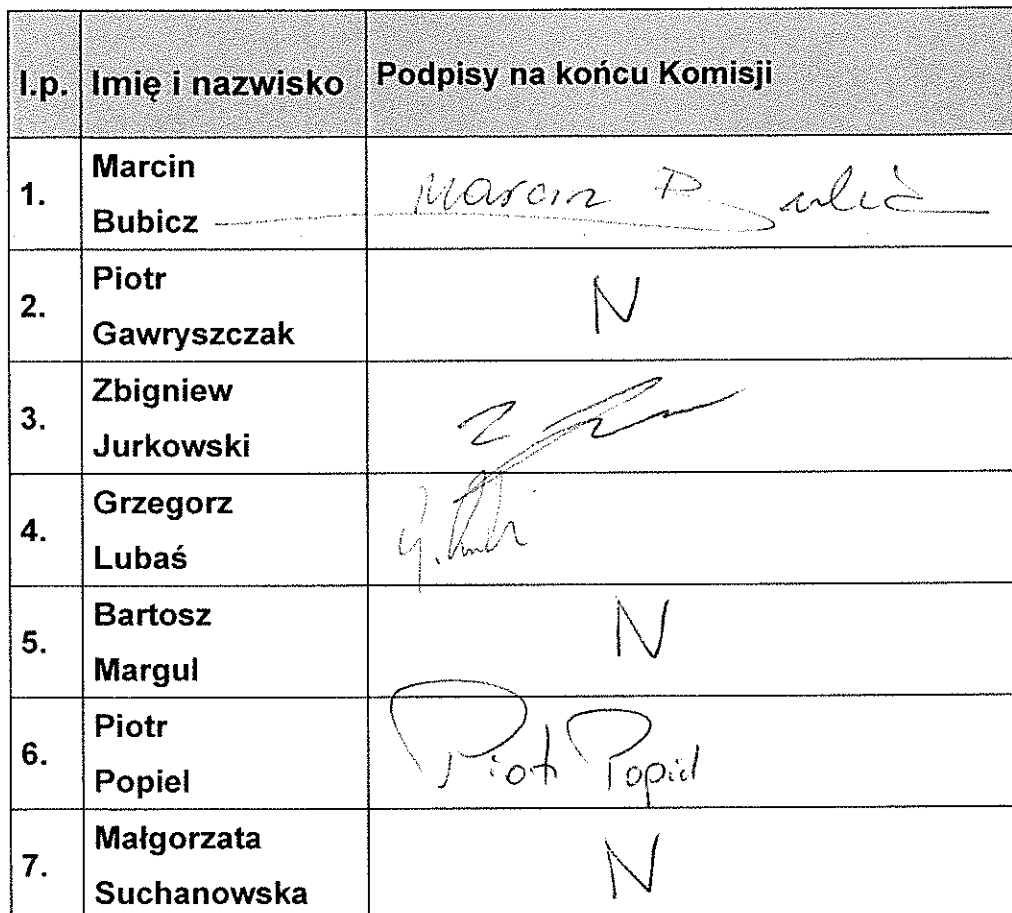 l.p. Imię i nazwisko Podpisy na końcu Komisji
1. Marcin
Bubicz
Marcin
2. Piotr
Gawryszczak
N
3. Zbigniew
Jurkowski
Z
4. Grzegorz
Lubaś
5. Bartosz
Margul
N
6. Piotr
Popiel
Piotr Popiel
7. Małgorzata
Suchanowska
N